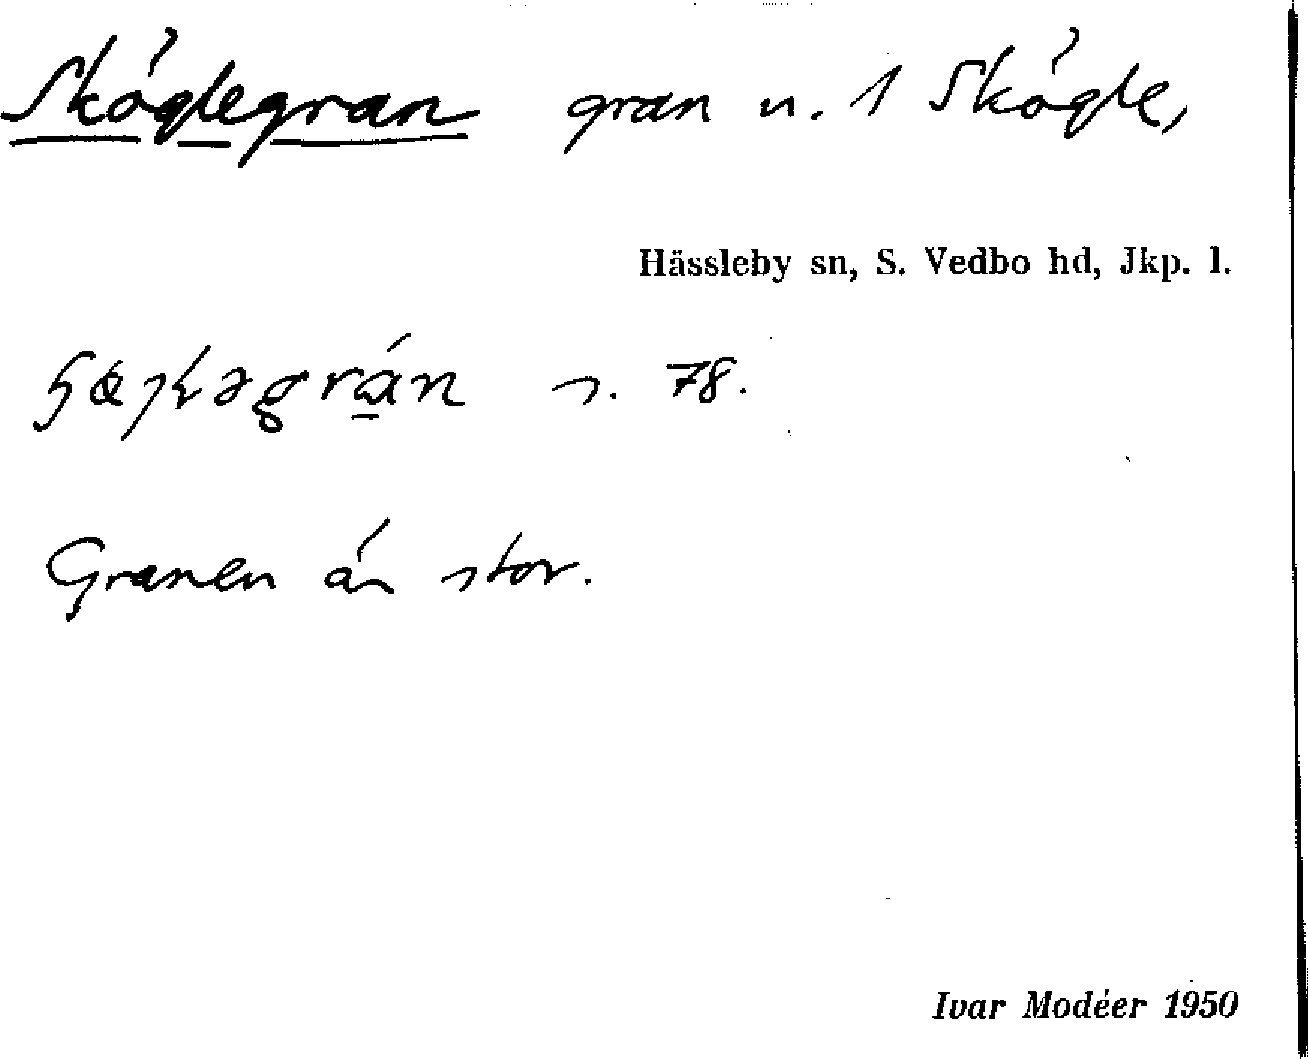 Sköglegran gran n. 1 Skögle,
Hässleby sn, S. Vedbo hd, Jkp. l.
s. 78.
Granen är stor.
Ivar Modéer 1950